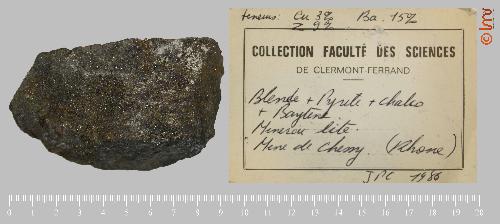 teneurs: Cu 3% Ba. 15%
Z 9%
COLLECTION FACULTÉ DES SCIENCES
DE CLERMONT-FERRAND
Blende + Pyrite + chalco
+ Barytine
Minerai lité.
Mine de Chessy. (Rhone)
JPC 1986
0 1 2 3 4 5 6 7 8 9 10 11 12 13 14 15 16 17 18 19 20